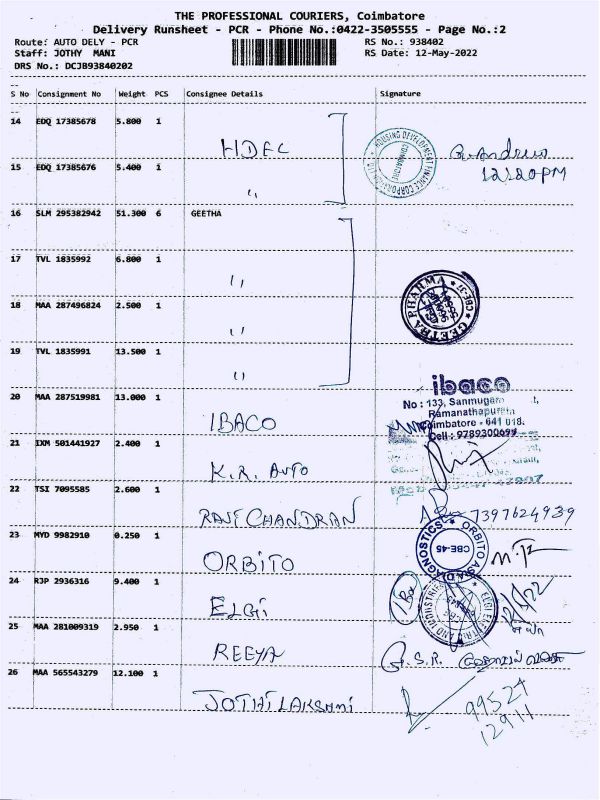 THE PROFESSIONAL COURIERS, Coimbatore
Delivery Runsheet - PCR - Phone No.:0422-3505555 - Page No.:2
Route: AUTO DELY - PCR RS No.: 938402
Staff: JOTHY MANI RS Date: 12-May-2022
DRS No.: DCJB93840202
S No Consignment No Weight PCS Consignee Details Signature
14 EDQ 17385678 5.800 1
HDFC
HOUSING DEVELOPMENT FINANCE CORPORATION LTD
COIMBATORE
12:20PM
15 EDQ 17385676 5.400 1
,,
16 SLM 295382942 51.300 6 GEETHA
17 TVL 1835992 6.800 1
,,
GEETHA PHARMA
CBE-37
18 MAA 287496824 2.500 1
,,
19 TVL 1835991 13.500 1
,,
ibaco
No : 133, Sanmugam
Ramanathapuram
Coimbatore - 641 018.
Cell : 9789300699
20 MAA 287519981 13.000 1
IBACO
21 IXM 501441927 2.400 1
K.R. AUTO
22 TSI 7095585 2.600 1
RAVICHANDRAN
7397624939
23 MYD 9982910 0.250 1
ORBITO
ORBITO ASIA DIAGNOSTICS
CBE-45
24 RJP 2936316 9.400 1
ELGI
1 Box
25 MAA 281009319 2.950 1
REEYA
G.S.R.
26 MAA 565543279 12.100 1
JOTHI LAKSHMI
99524
12911